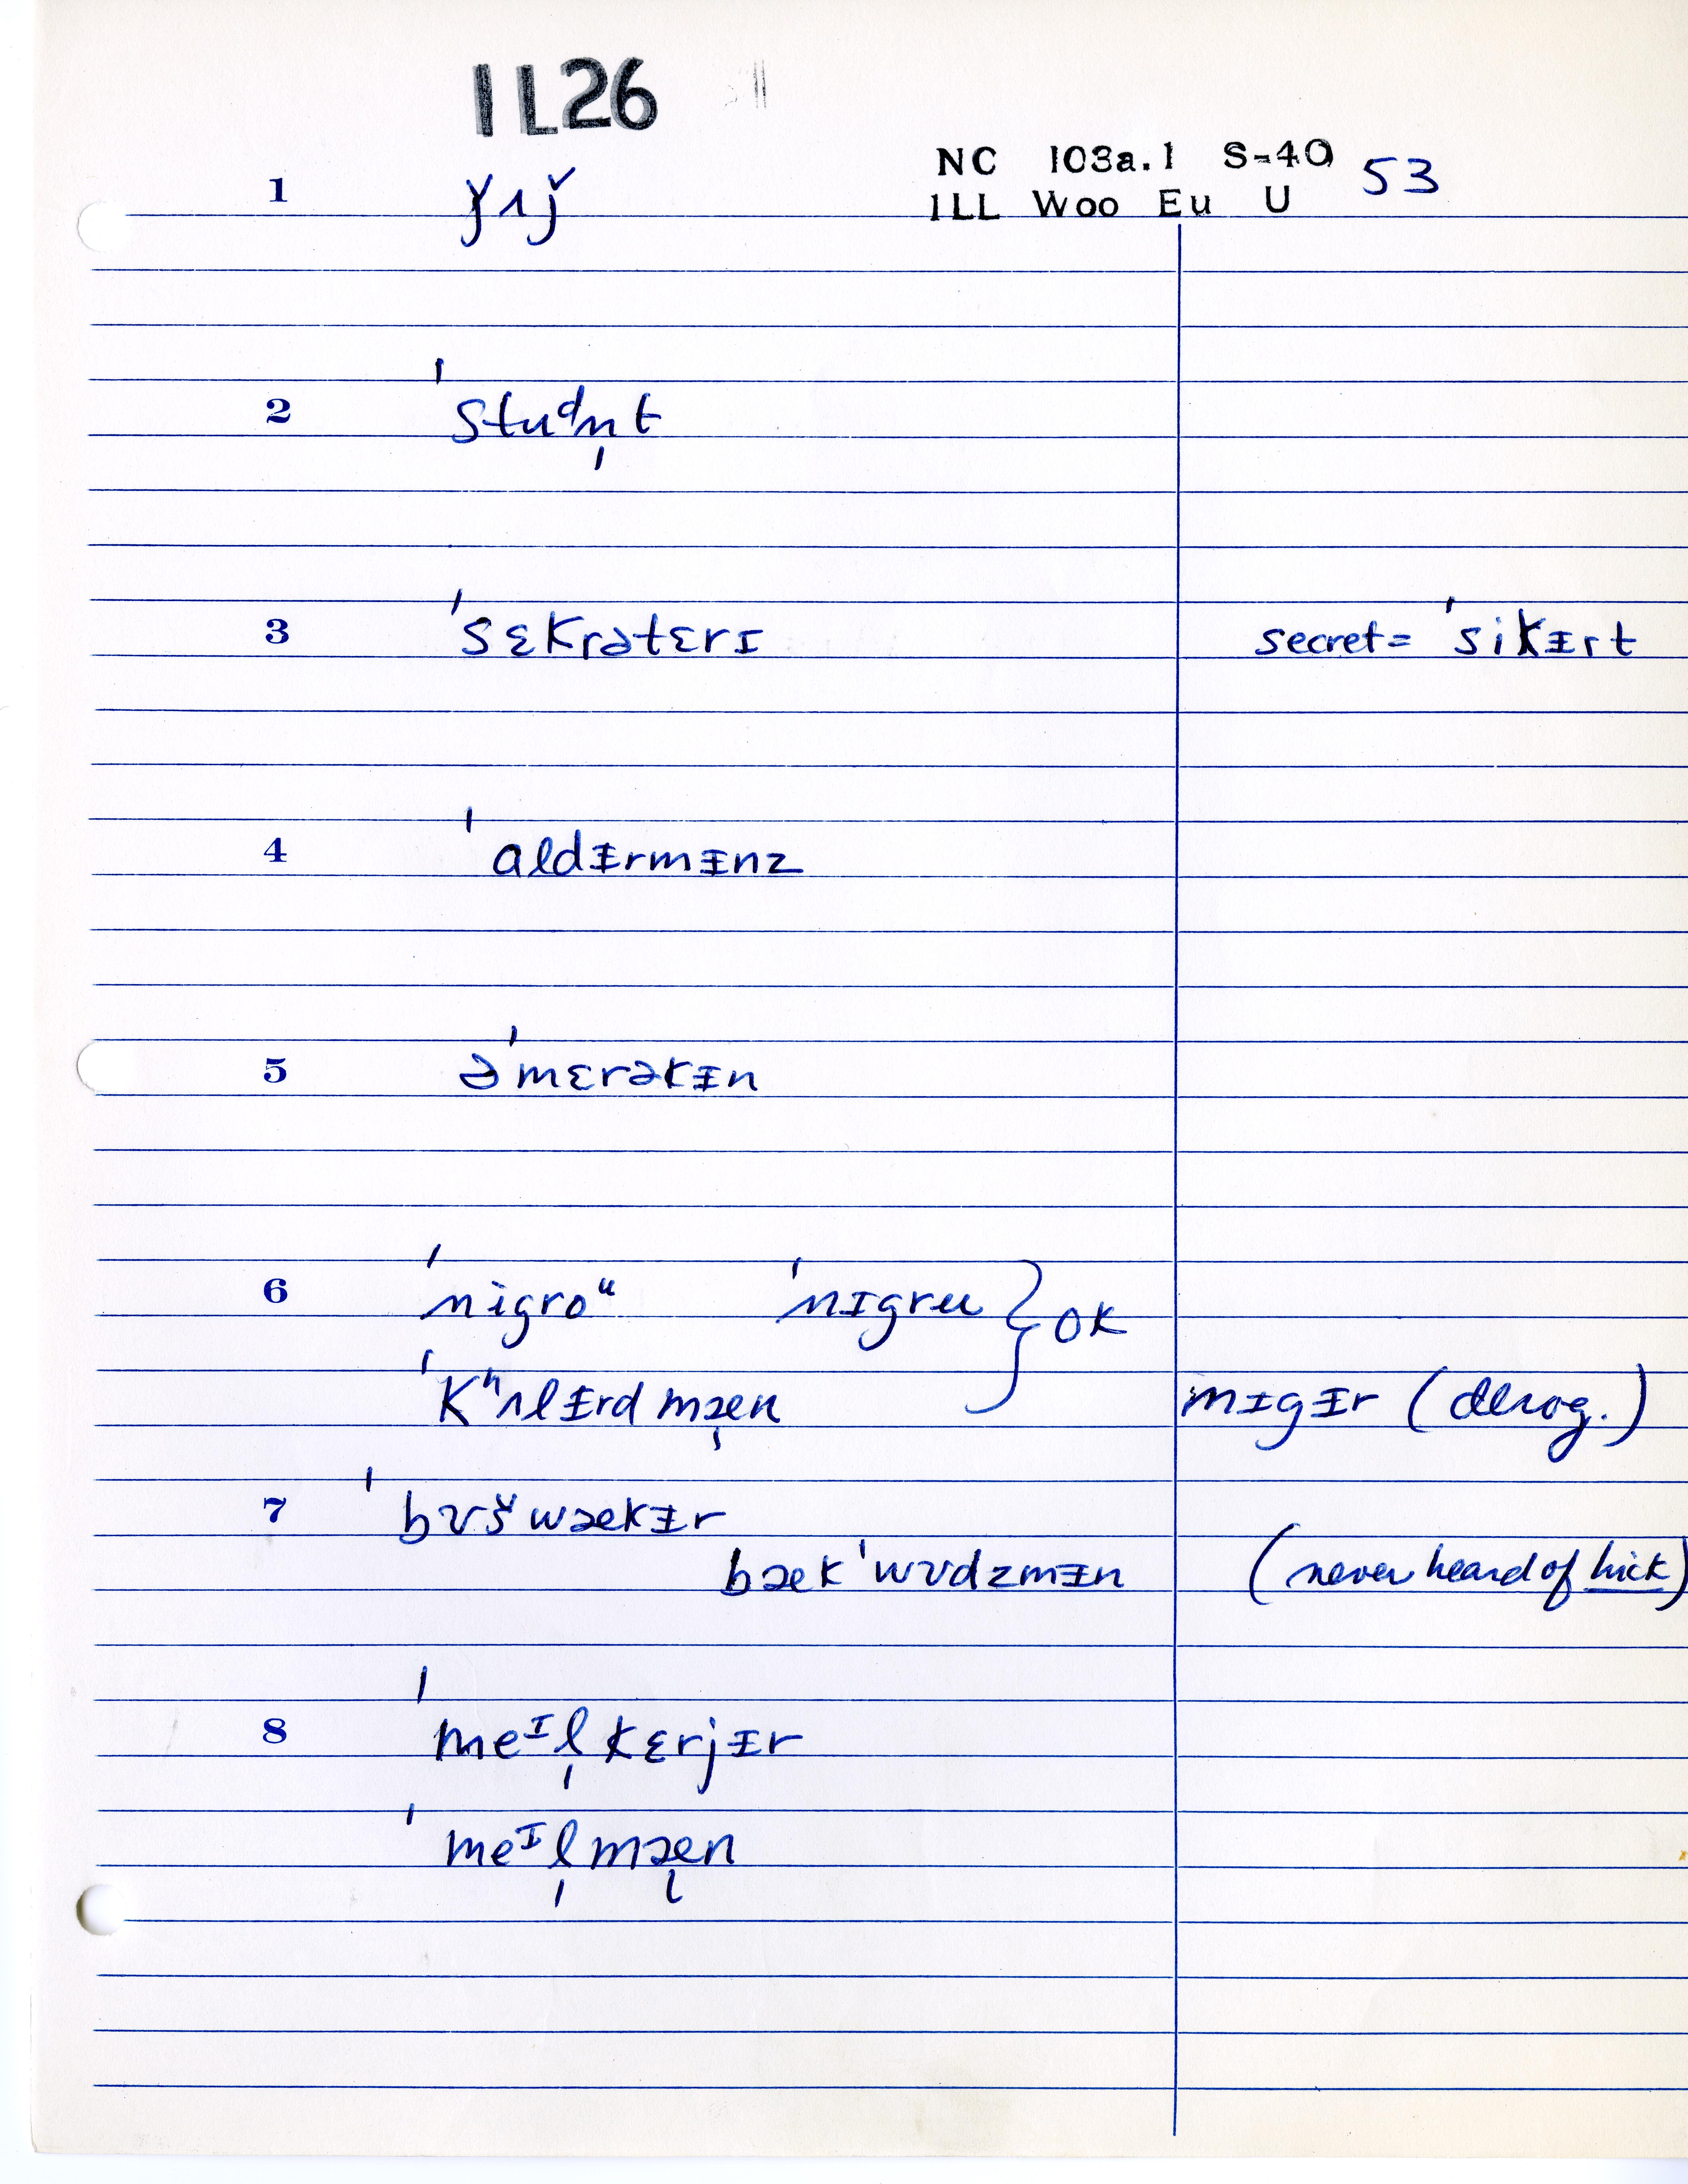 IL26
NC 103a.1 S-40 53
ILL Woo Eu U
1 ǰʌǰ
2 ˈstudn̩t
3 ˈsɛkrətɛrɪ secret= ˈsikᵻrt
4 ˈaldᵻrmᵻnz
5 əˈmɛrəkᵻn
6 ˈnigroᵘ ˈnɪgrʉ } OK
ˈkʰʌlᵻrd mæ̩n nɪgᵻr (derog.)
7 ˈbʊšwækᵻr
bækˈwʊdzmᵻn (never heard of hick)
8 ˈmeᴵl̩kɛrjᵻr
ˈmeᴵl̩mæ̩n